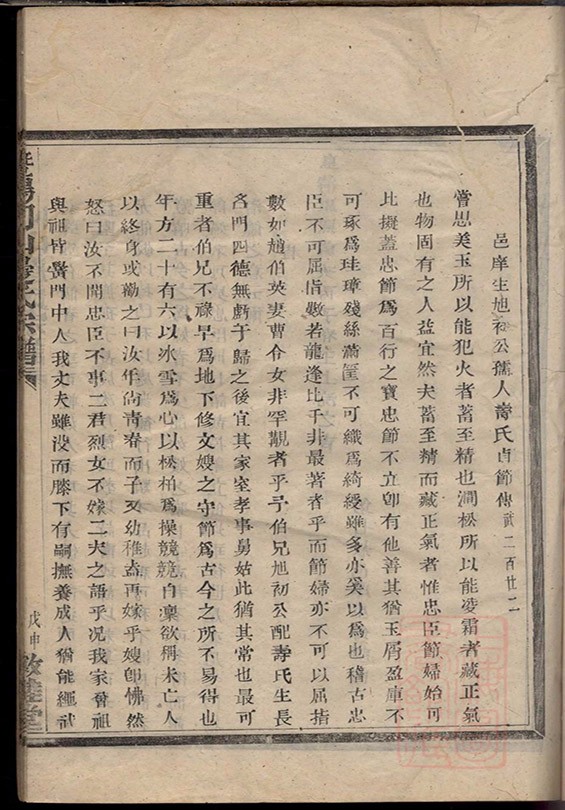 邑庠生旭初公孺人壽氏貞節傳 武二百廿二
嘗思美玉所以能犯火者蓄至精也澗松所以能凌霜者藏正氣
也物固有之人益宜然夫蓄至精而藏正氣者惟忠臣節婦始可
比擬蓋忠節爲百行之寶忠節不立卽有他善其猶玉屑盈庫不
可琢爲珪璋殘絲滿筐不可織爲綺綬雖多亦奚以爲也稽古忠
臣不可屈指數若龍逢比干非最著者乎而節婦亦不可以屈指
數如趙伯英妻曹令女非罕觀者乎予伯兄旭初公配壽氏生長
名門四德無虧于歸之後宜其家室孝事舅姑此猶其常也最可
重者伯兄不祿早爲地下修文嫂之守節爲古今之所不易得也
年方二十有六以冰雪爲心以松柏爲操競競自凜欲稱未亡人
以終身或勸之曰汝年尙青春而子又幼稚盍再嫁乎嫂卽怫然
怒曰汝不聞忠臣不事二君烈女不嫁二夫之語乎况我家曾祖
與祖皆黌門中人我丈夫雖没而膝下有嗣撫養成人猶能繩武
氏宗譜
戊申 敦睦堂